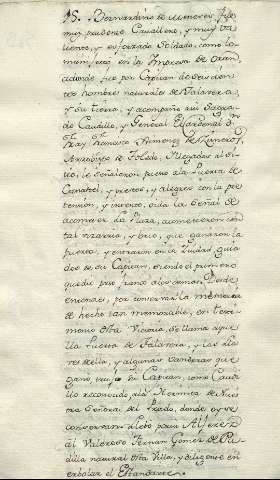 15. Bernardino de Meneses fue
muy prudente Cavallero, y muy va
liente, y esforzado Soldado, como lo
manifestó en la Empresa de Oran,
adonde fue por Capitan de doscien
tos hombres naturales de Talavera,
y su tierra, y acompañó al
Caudillo, y General El Cardenal Dn.
Fray Francisco Ximenez de Zisneros,
Arzobispo de Toledo. Llegados al si
tio, le señalaron puesto a la Puerta de
Canastel, y prestos, y alegres con la
oida la señal de
acometer la Plaza, acometieron con
tal vizarria, y brio, que ganaron la
Puerta, y entraron en la Ciudad, guia
dos de su Capitan, siendo el primero
que les dio paso franco a los demas. Desde
entonces, por conservar la memoria
de hecho tan memorable, en testi
monio de esta Victoria, se llama aque
lla Puerta de Talavera, y las llaves
de ella, y algunas vanderas que
ganó, trujo su Capitan, como Caudi
llo reconocido a la Hermita de Nues
tra Señora del Prado, donde oy se
conservan: llebó para Alferez
al Valeroso Hernan Gomez de Pa
dilla natural de esta Villa, y diligente en
enrbolar el Estandarte.